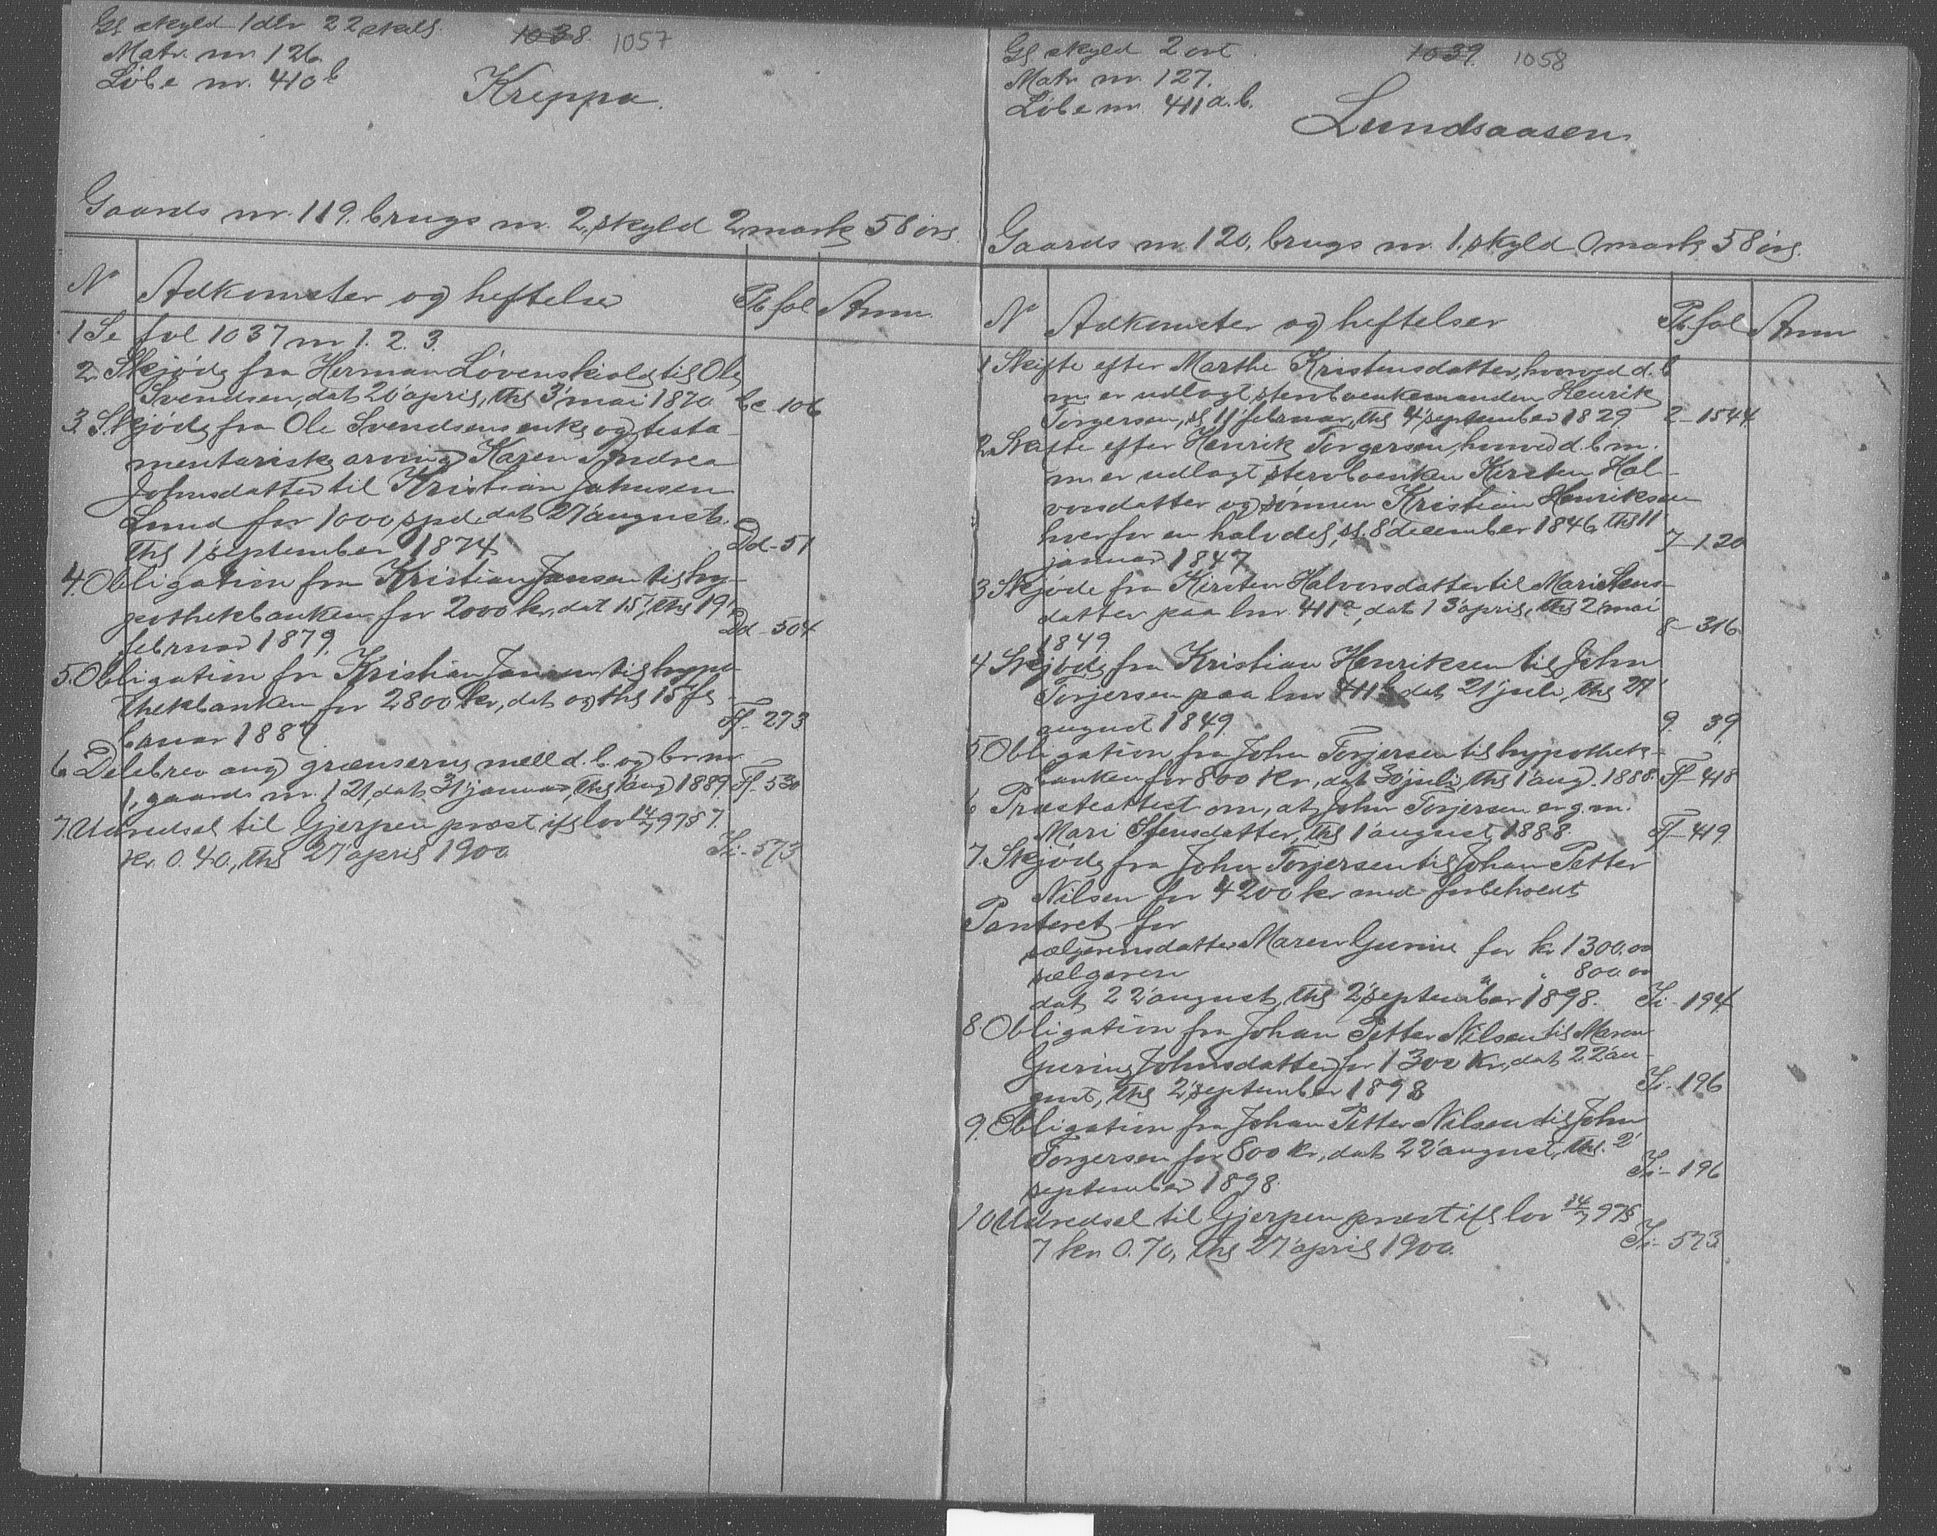 Gl skyld 1 dlr 22 skilg.
1038 1057
Matr. nr. 126.
Løbe nr. 410b
Kreppa.
Gaards nr. 119. brugs nr. 2, skyld 2 mark 58 øre.
N Adkomster og heftelser Pb fol Anm.
1 Se fol 1037 nr 1. 2. 3.
2. Skjøde fra Herman Løvenskiold til Ole
Svendsen, dat 20' april, thl 3' mai 1870 106
3. Skjøde fra Ole Svendsens enke og testa-
mentariske arving Karen Andrea
Johnsdatter til Kristian Johnsen
Lund for 1000 spd. dat 27' august.
thl 1' september 1874 Dd - 51
4. Obligation fra Kristian Jansen til hy-
pothekbanken for 2000 kr, dat 15', thl 19'
februar 1879. Dd - 504
5. Obligation fra Kristian Jansen til hypo-
thekbanken for 2800 kr, dat og thl 15' fe-
bruar 1887. Ff - 273
6. Delebrev ang grænserne mell d. b. og br nr
1, gaards nr. 121, dat 31' januar, thl aug 1889 Ff - 530
7. Udredsel til Gjerpen præst ifl lov 14/7 97 § 7.
kr. 0.40, thl 27' april 1900 Ii - 573
Gl skyld 2 ort
1039 1058
Matr nr. 127.
Løbe nr. 411 a. b.
Lundsaasen.
Gaards nr. 120, brugs nr. 1. skyld 0 mark 58 øre.
N Adkomster og heftelser Pb fol Anm
1 Skifte efter Marthe Kristensdatter, hvorved d. b
nr er udlagt sterboenkemanden Henrik
Torgersen, sl 11' februar, thl 4' september 1829. 2 - 1544
2. Skifte efter Henrik Torgersen, hvorved d. b nr.
nr er udlagt sterboenken Kirsten Hal-
vorsdatter og sønnen Kristian Henriksen
hver for en halvdel, sl. 8' december 1846 thl 11
januar 1847 7 - 120
3 Skjøde fra Kirsten Halvorsdatter til Mari Stens-
datter paa lnr 411a, dat 13' april, thl 2' mai
1849. 8 - 316
4 Skjøde fra Kristian Henriksen til John
Torjersen paa lnr 411b dat 21' juli, thl 27'
august 1849. 9. 39
5. Obligation fra John Torjersen til hypothek-
banken for 800 kr, dat 30' juli, thl 1' aug. 1888. Ff - 418
6 Præsteattest om, at John Torjersen er g. m.
Mari Stensdatter, thl 1' august 1888. Ff - 419
7. Skjøde fra John Torjersen til Johan Petter
Nilsen for 4200 kr med forbeholdt
Panteret for
sælgerens datter Maren Gurine for kr 1300.00
sælgeren " " 800.00
dat 22' august, thl 2' september 1898. Ii - 194
8. Obligation fra Johan Petter Nilsen til Maren
Gurine Johnsdatter for 1300 kr, dat 22' au-
gust, thl 2' september 1898 Ii - 196
9. Obligation fra Johan Petter Nilsen til John
Torgersen for 800 kr, dat 22' august, thl. 2'
september 1898. Ii - 196
10 Udredsel til Gjerpen præst ifl lov 14/7 97 §
7 kr. 0.70, thl 27' april 1900. Ii - 573